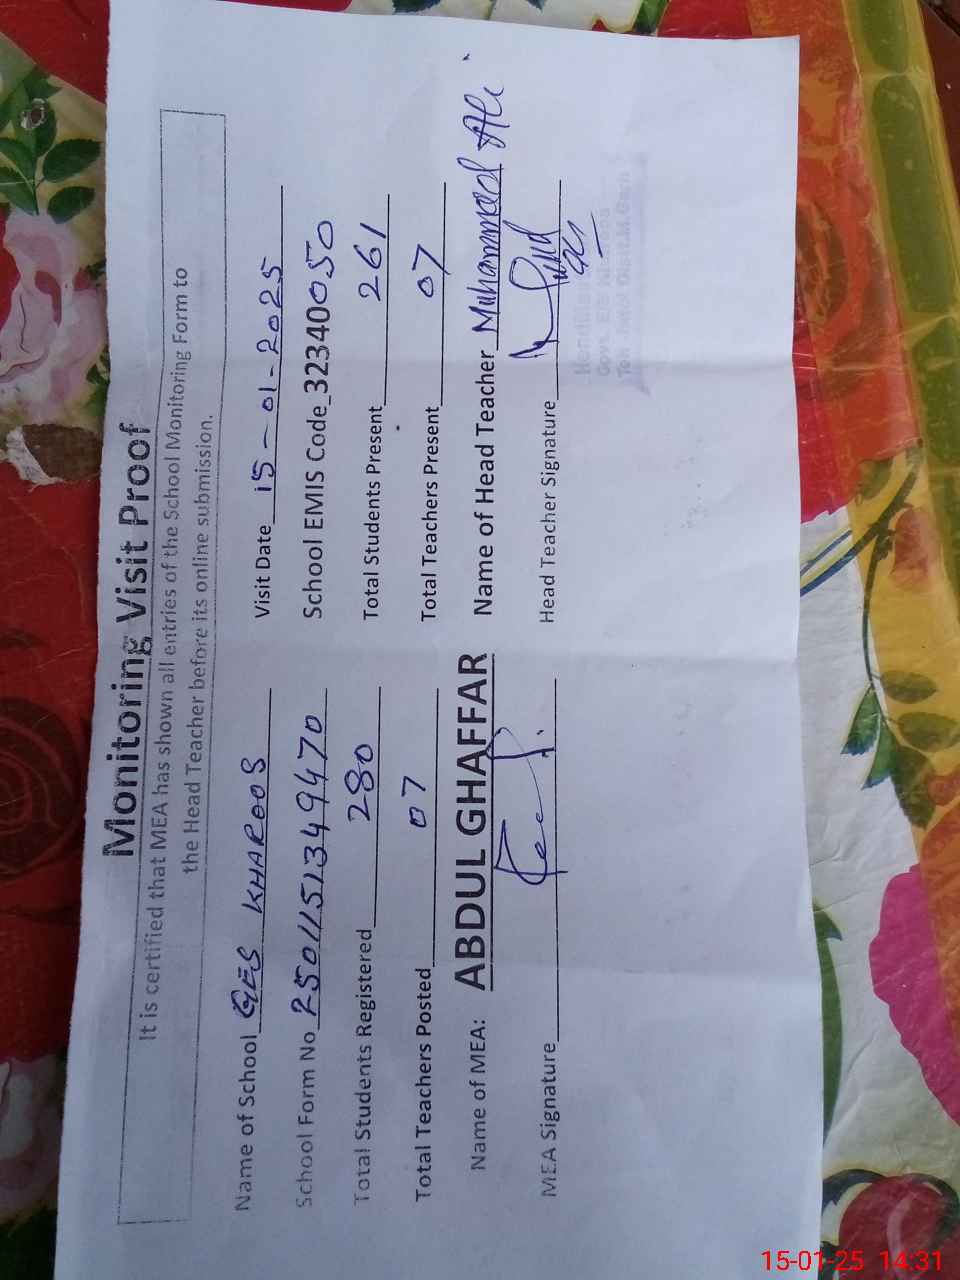 Monitoring Visit Proof
It is certified that MEA has shown all entries of the School Monitoring Form to
the Head Teacher before its online submission.
Name of School GES KHAROOS Visit Date 15-01-2025
School Form No 2501151349470 School EMIS Code 32340050
Total Students Registered 280 Total Students Present 261
Total Teachers Posted 07 Total Teachers Present 07
Name of MEA: ABDUL GHAFFAR Name of Head Teacher Muhammad Ali
MEA Signature Head Teacher Signature
15-01-25 14:31